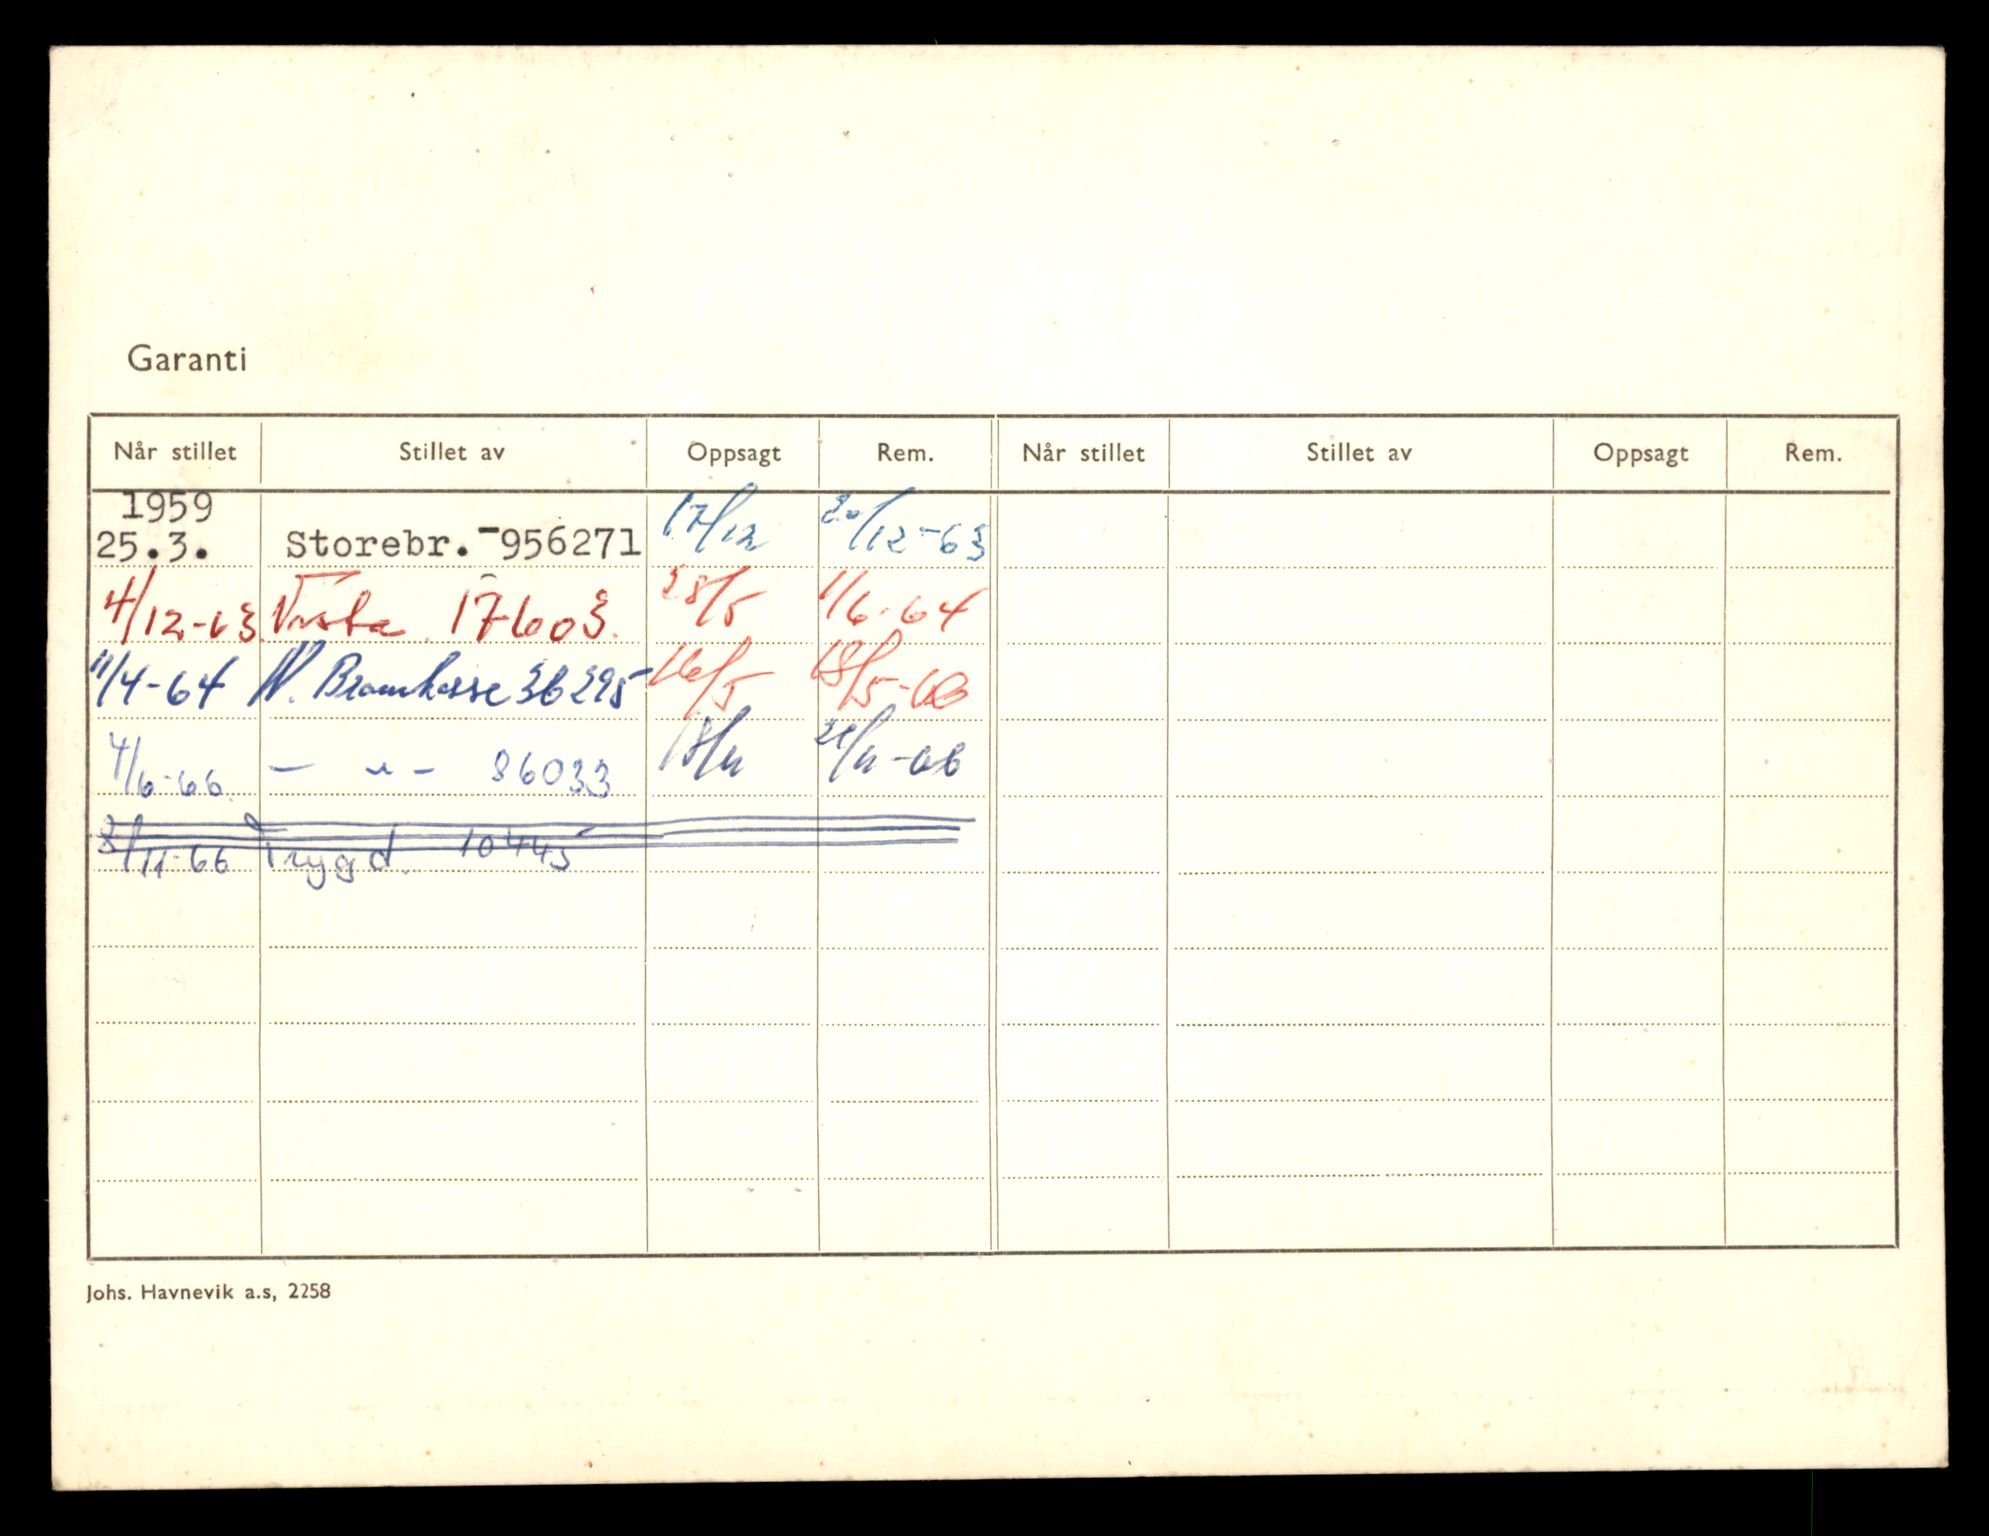 Garanti
Når stillet Stillet av Oppsagt Rem. Når stillet Stillet av Oppsagt Rem.
1959
25.3. Storebr.-956271 17/12 20/12-63
4/12-63 Vesta 17603. 28/5 1/6-64
11/4-64 N. Brannkasse 36295 16/5 18/5-66
4/6-66. — " — 86033 18/11 21/11-66
8/11-66 Trygd. 10445
Johs. Havnevik a.s, 2258